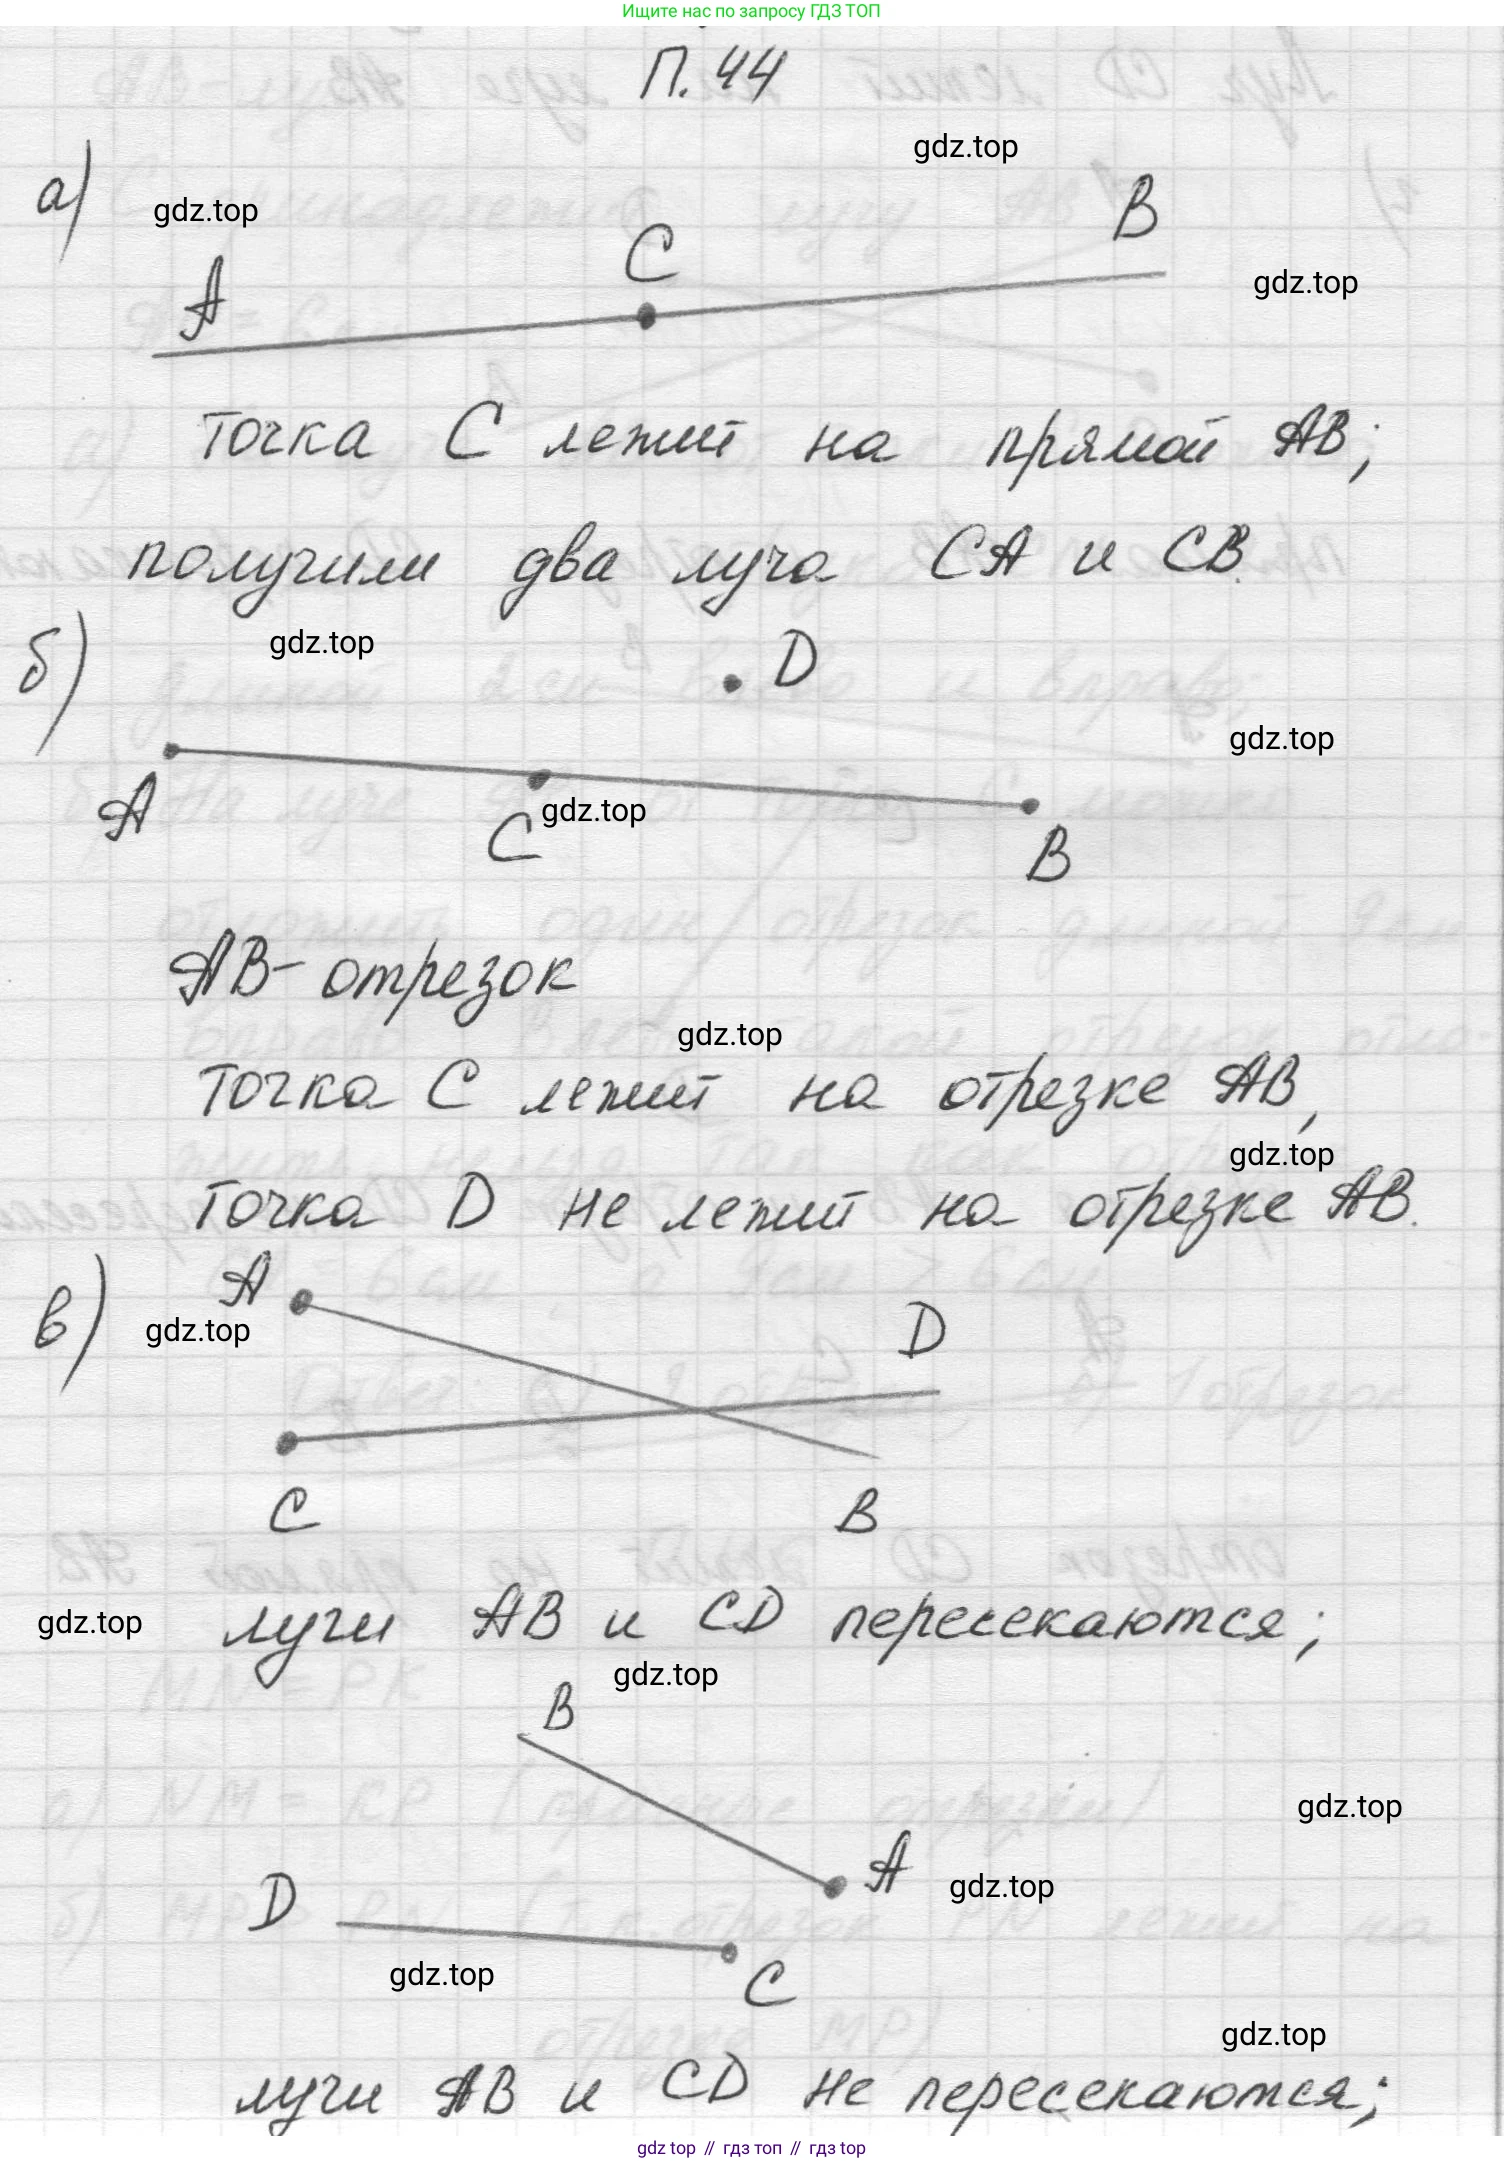 Ищите нас по запросу ГДЗ ТОП
П. 44
gdz.top
а)
gdz.top
B
C
A
gdz.top
точка C лежит на прямой AB;
получили два луча CA и CB.
б)
gdz.top
D
gdz.top
A
C
gdz.top
B
AB - отрезок
gdz.top
точка C лежит на отрезке AB,
gdz.top
точка D не лежит на отрезке AB.
в)
A
gdz.top
D
C
B
gdz.top
лучи AB и CD пересекаются;
gdz.top
B
gdz.top
A
gdz.top
D
gdz.top
C
gdz.top
лучи AB и CD не пересекаются;
gdz top // гдз топ // гдз top